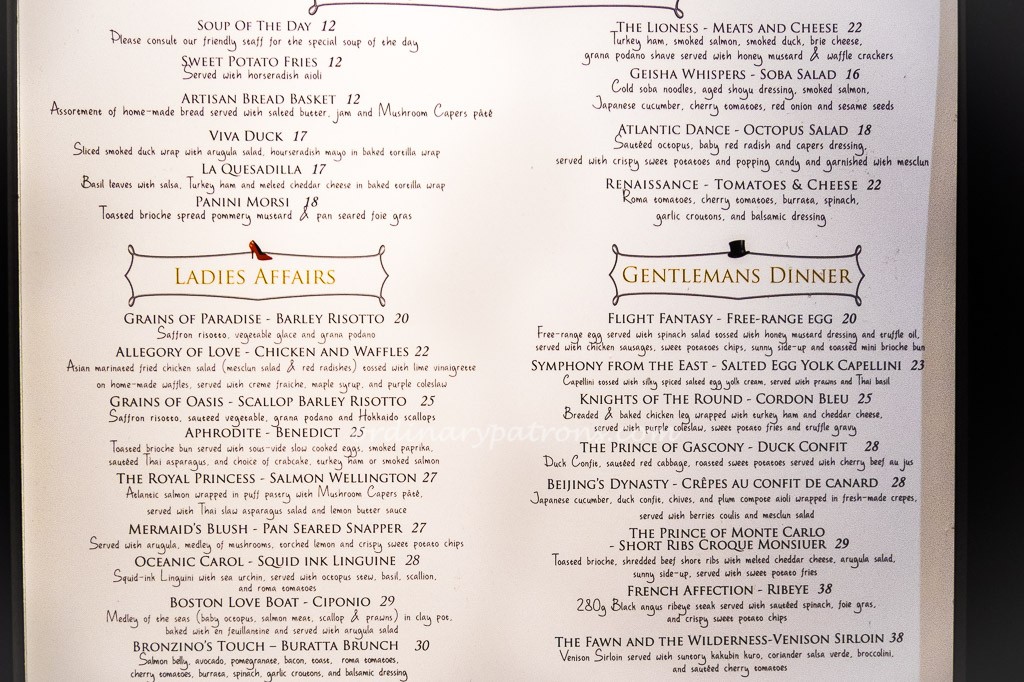 SOUP OF THE DAY 12
Please consult our friendly staff for the special soup of the day
SWEET POTATO FRIES 12
Served with horseradish aioli
ARTISAN BREAD BASKET 12
Assorement of home-made bread served with salted butter, jam and Mushroom Capers pâtê
VIVA DUCK 17
Sliced smoked duck wrap with arugula salad, hourseradish mayo in baked tortilla wrap
LA QUESADILLA 17
Basil leaves with salsa, Turkey ham and melted cheddar cheese in baked tortilla wrap
PANINI MORSI 18
Toasted brioche spread pommery mustard & pan seared foie gras
THE LIONESS - MEATS AND CHEESE 22
Turkey ham, smoked salmon, smoked duck, brie cheese,
grana podano shave served with honey mustard & waffle crackers
GEISHA WHISPERS - SOBA SALAD 16
Cold soba noodles, aged shoyu dressing, smoked salmon,
Japanese cucumber, cherry tomatoes, red onion and sesame seeds
ATLANTIC DANCE - OCTOPUS SALAD 18
Sautéed octopus, baby red radish and capers dressing,
served with crispy sweet potatoes and popping candy and garnished with mesclun
RENAISSANCE - TOMATOES & CHEESE 22
Roma tomatoes, cherry tomatoes, burrata, spinach,
garlic croutons, and balsamic dressing
LADIES AFFAIRS
GRAINS OF PARADISE - BARLEY RISOTTO 20
Saffron risotto, vegetable glace and grana podano
ALLEGORY OF LOVE - CHICKEN AND WAFFLES 22
Asian marinated fried chicken salad (mesclun salad & red radishes) tossed with lime vinaigrette
on home-made waffles, served with creme fraiche, maple syrup, and purple coleslaw
GRAINS OF OASIS - SCALLOP BARLEY RISOTTO 25
Saffron risotto, sauteed vegetable, grana podano and Hokkaido scallops
APHRODITE - BENEDICT 25
Toasted brioche bun served with sous-vide slow cooked eggs, smoked paprika,
sautéed Thai asparagus, and choice of crabcake, turkey ham or smoked salmon
THE ROYAL PRINCESS - SALMON WELLINGTON 27
Atlantic salmon wrapped in puff pastery with Mushroom Capers pâtê,
served with Thai slaw asparagus salad and lemon butter sauce
MERMAID'S BLUSH - PAN SEARED SNAPPER 27
Served with arugula, medley of mushrooms, torched lemon and crispy sweet potato chips
OCEANIC CAROL - SQUID INK LINGUINE 28
Squid-ink Linguini with sea urchin, served with octopus stew, basil, scallion,
and roma tomatoes
BOSTON LOVE BOAT - CIPONIO 29
Medley of the seas (baby octopus, salmon meat, scallop & prawns) in clay pot,
baked with en feuillantine and served with arugula salad
BRONZINO'S TOUCH – BURATTA BRUNCH 30
Salmon belly, avocado, pomegranate, bacon, toast, roma tomatoes,
cherry tomatoes, burrata, spinach, garlic croutons, and balsamic dressing
GENTLEMANS DINNER
FLIGHT FANTASY - FREE-RANGE EGG 20
Free-range egg served with spinach salad tossed with honey mustard dressing and truffle oil,
served with chicken sausages, sweet potatoes chips, sunny side-up and toasted mini brioche bun
SYMPHONY FROM THE EAST - SALTED EGG YOLK CAPELLINI 23
Capellini tossed with silky spiced salted egg yolk cream, served with prawns and Thai basil
KNIGHTS OF THE ROUND - CORDON BLEU 25
Breaded & baked chicken leg wrapped with turkey ham and cheddar cheese,
served with purple coleslaw, sweet potato fries and truffle gravy
THE PRINCE OF GASCONY - DUCK CONFIT 28
Duck Confit, sautéed red cabbage, roasted sweet potatoes served with cherry beef au jus
BEIJING'S DYNASTY - CRÊPES AU CONFIT DE CANARD 28
Japanese cucumber, duck confit, chives, and plum compote aioli wrapped in fresh-made crepes,
served with berries coulis and mesclun salad
THE PRINCE OF MONTE CARLO
- SHORT RIBS CROQUE MONSIUER 29
Toasted brioche, shredded beef shore ribs with melted cheddar cheese, arugula salad,
sunny side-up, served with sweet potato fries
FRENCH AFFECTION - RIBEYE 38
280g Black angus ribeye steak served with sautéed spinach, foie gras,
and crispy sweet potato chips
THE FAWN AND THE WILDERNESS-VENISON SIRLOIN 38
Venison Sirloin served with suntory kakubin kuro, coriander salsa verde, broccolini,
and sautéed cherry tomatoes
ordinarypatrons.com